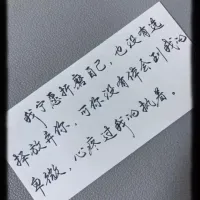 我宁愿折磨自己，也没有选
择放弃你、可你没有体会到我的
卑微，心疼过我的执着。